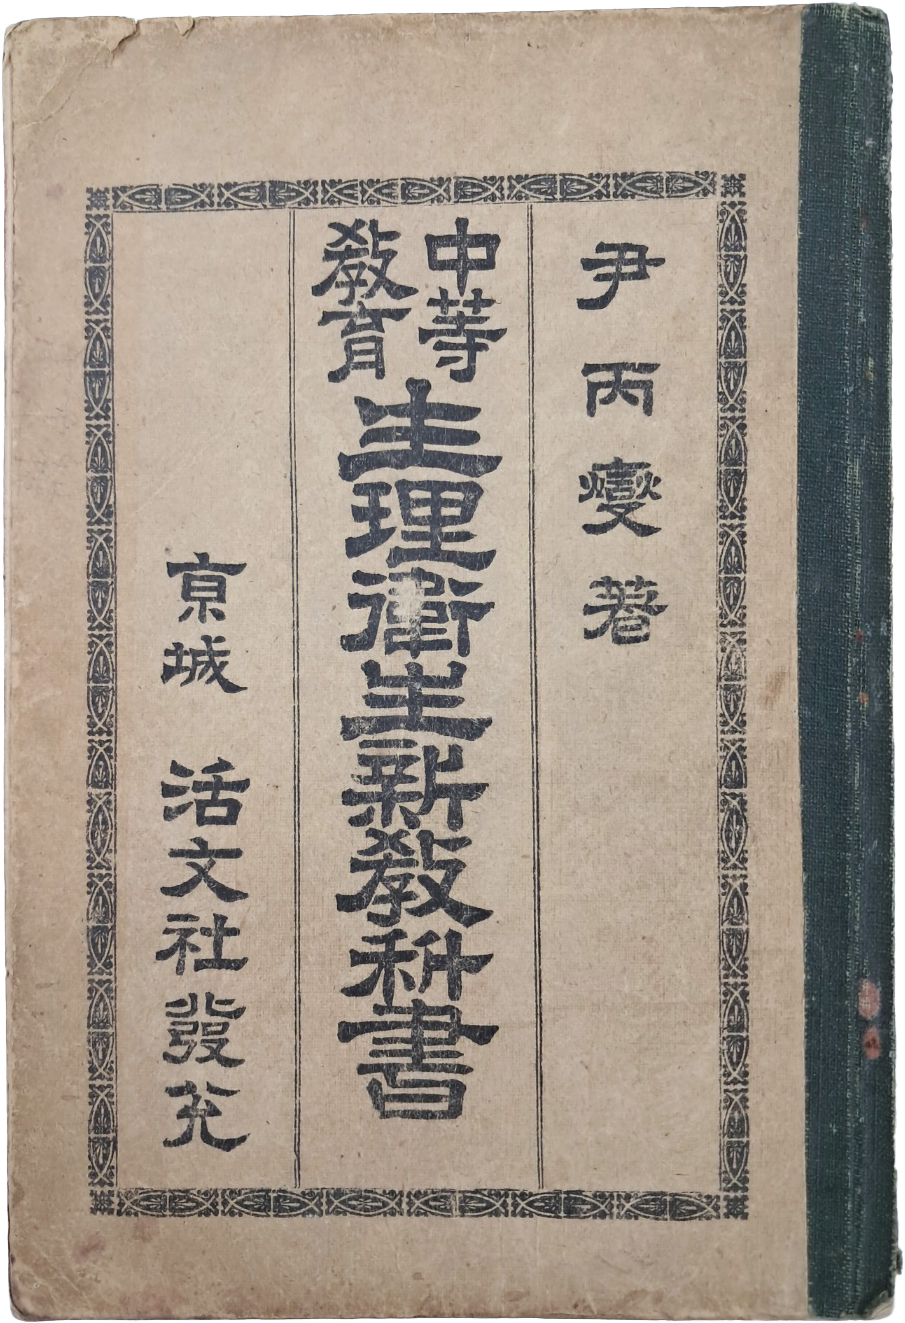 尹丙燮著
中等
敎育
生理衛生新敎科書
京城 活文社發兌